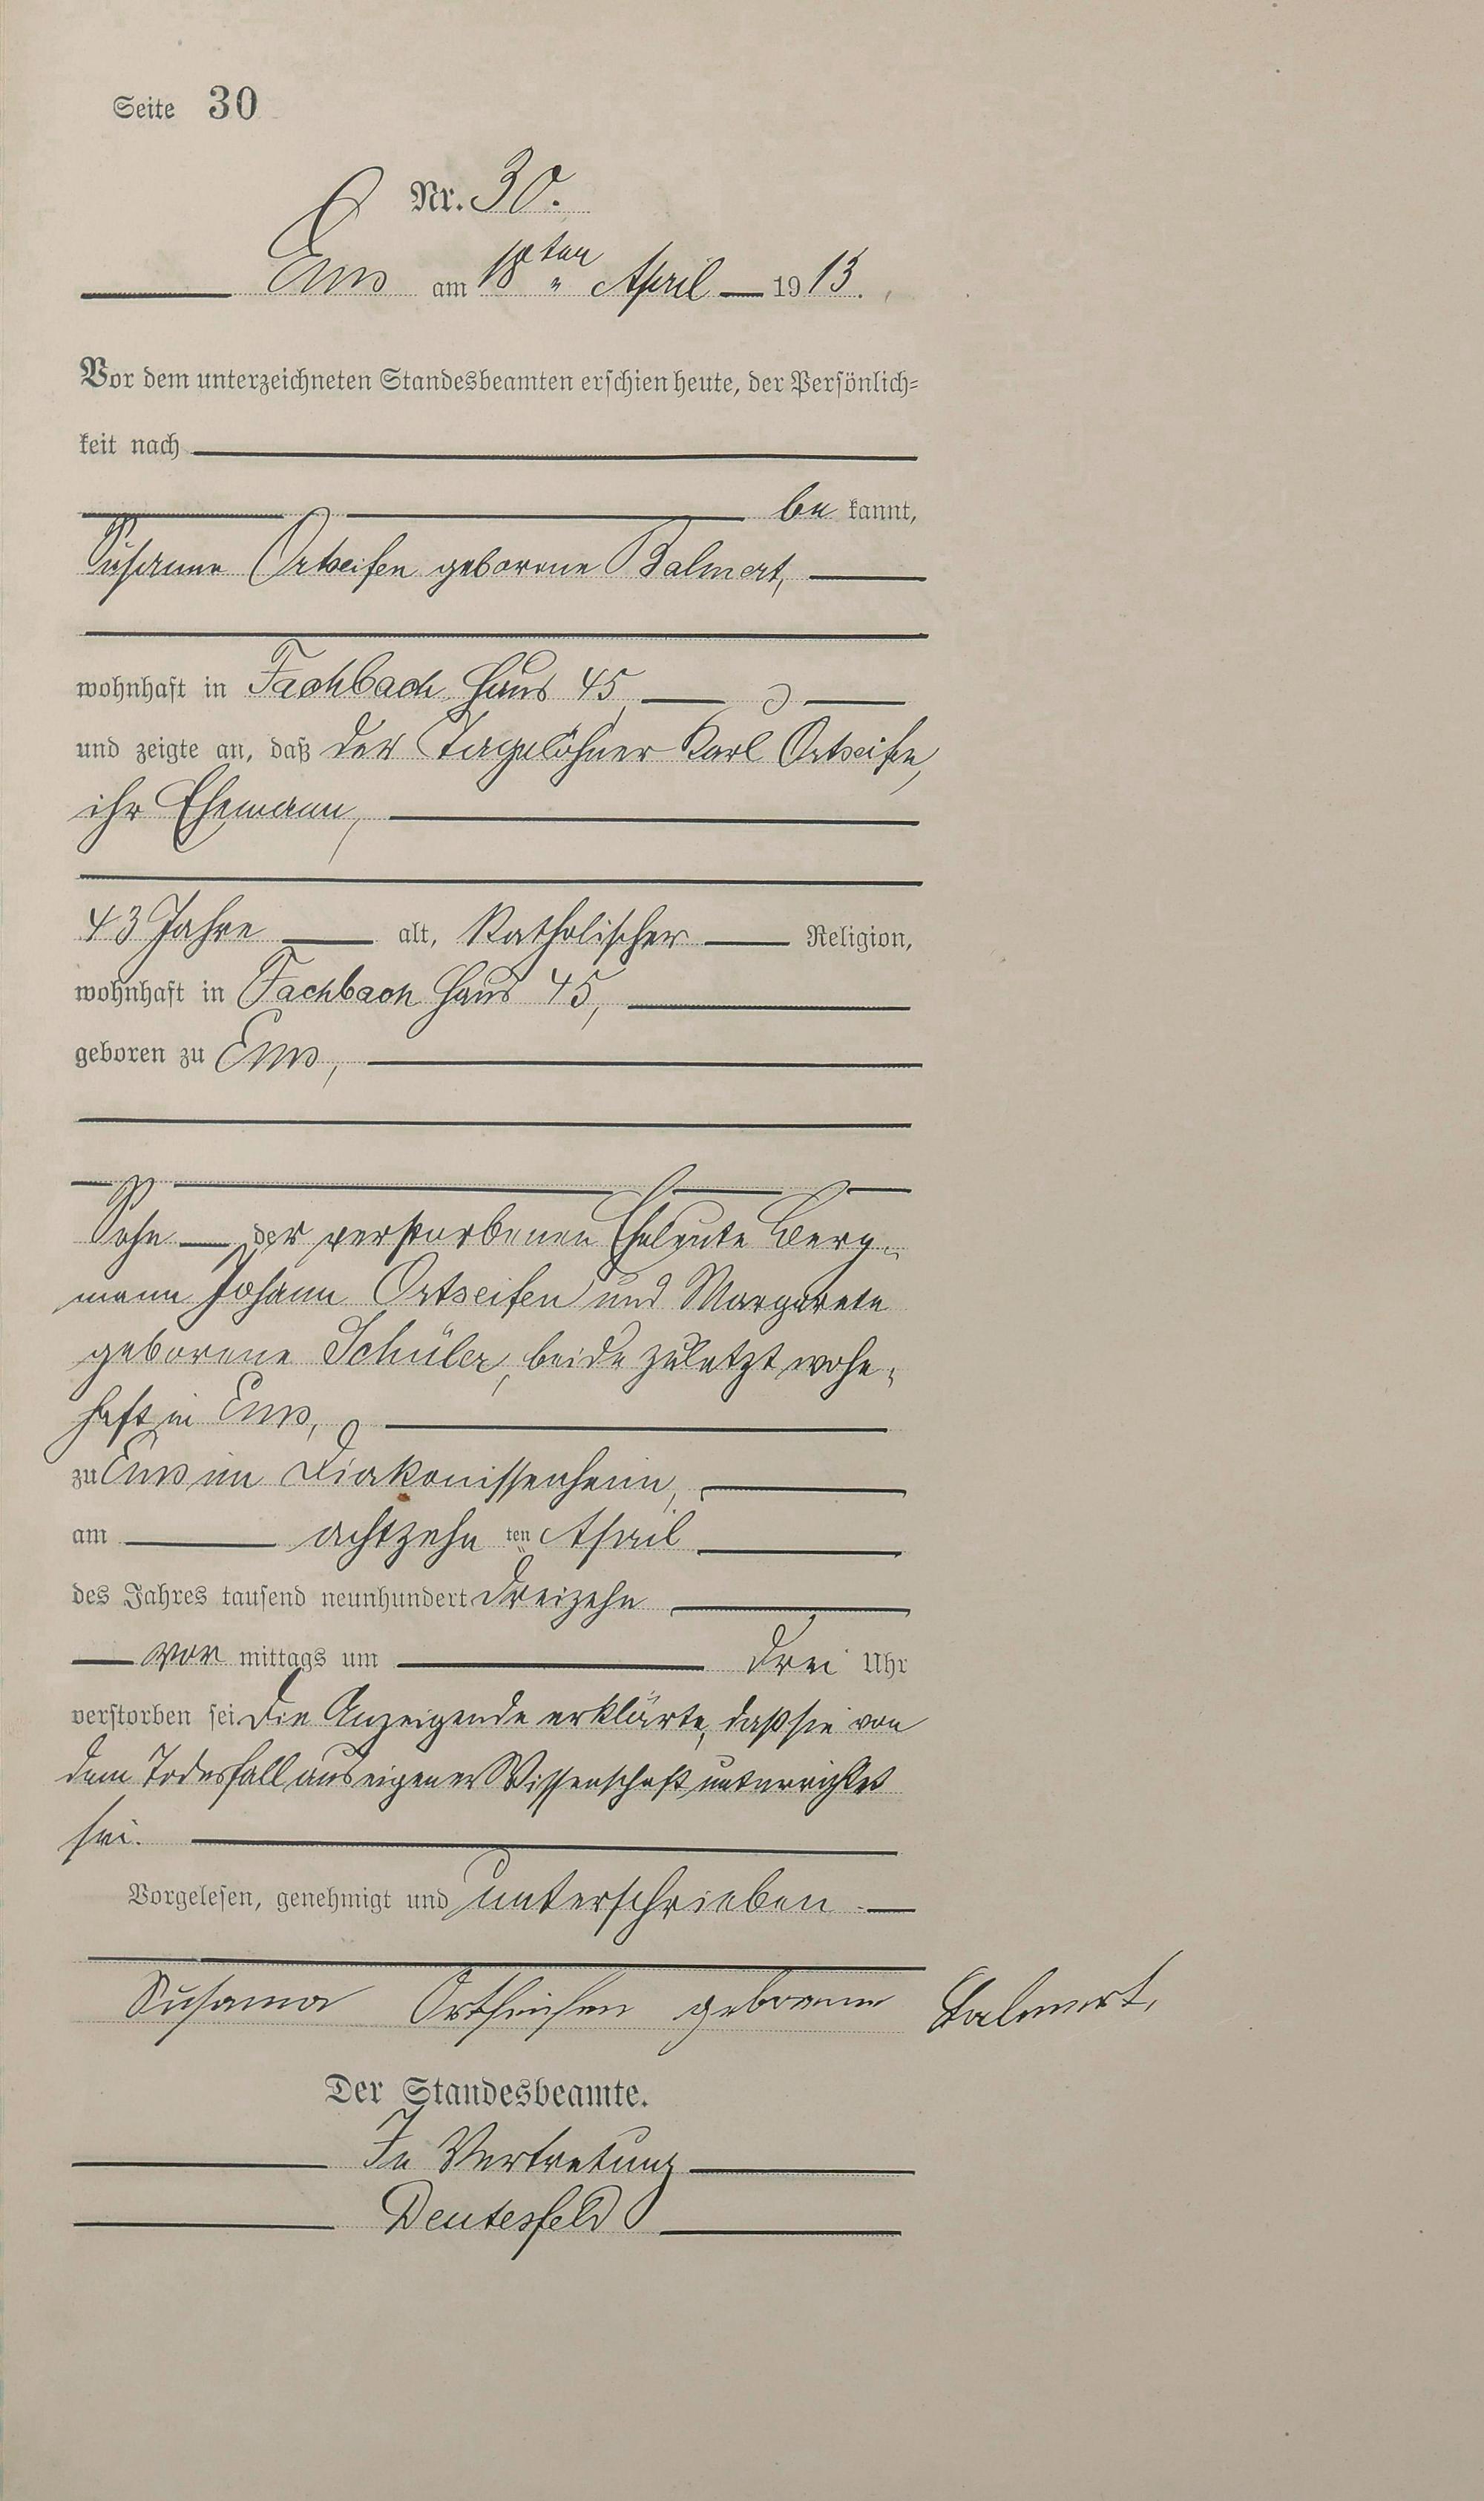 Seite 30
Nr. 30.
Ems am 18ten April 1913.
Vor dem unterzeichneten Standesbeamten erschien heute, der Persönlich=
keit nach
be kannt,
Susanne Ortseifen geborene Balmert,
wohnhaft in Fachbach Haus 45
und zeigte an, daß der Tagelöhner Karl Ortseifen,
ihr Ehemann,
43 Jahre alt, Katholischer Religion,
wohnhaft in Fachbach Haus 45,
geboren zu Ems,
Sohn der verstorbenen Eheleute Berg-
mann Johann Ortseifen und Margarete
geborene Schüler, beide zuletzt wohn-
haft in Ems,
zu Ems im Diakonissenheim,
am achtzehn ten April
des Jahres tausend neunhundert dreizehn
vor mittags um drei Uhr
verstorben sei Die Anzeigende erklärte, daß sie von
dem Todesfall aus eigener Wissenschaft unterrichtet
sei.
Vorgelesen, genehmigt und unterschrieben
Susanna Ortseifen geborene Balmert.
Der Standesbeamte.
In Vertretung
Deutesfeld